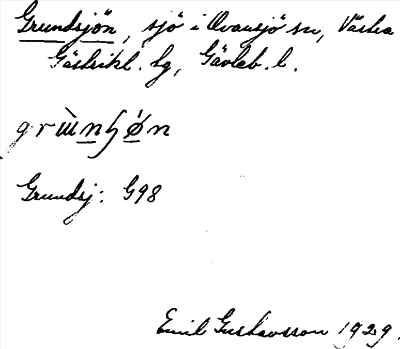 Grundsjön, sjö i Ovansjö sn, Västra
Gästrikl. hg, Gävleb. l.
grɯ̀nʃǿn
Grundsj: G98
Emil Gustavsson 1929.